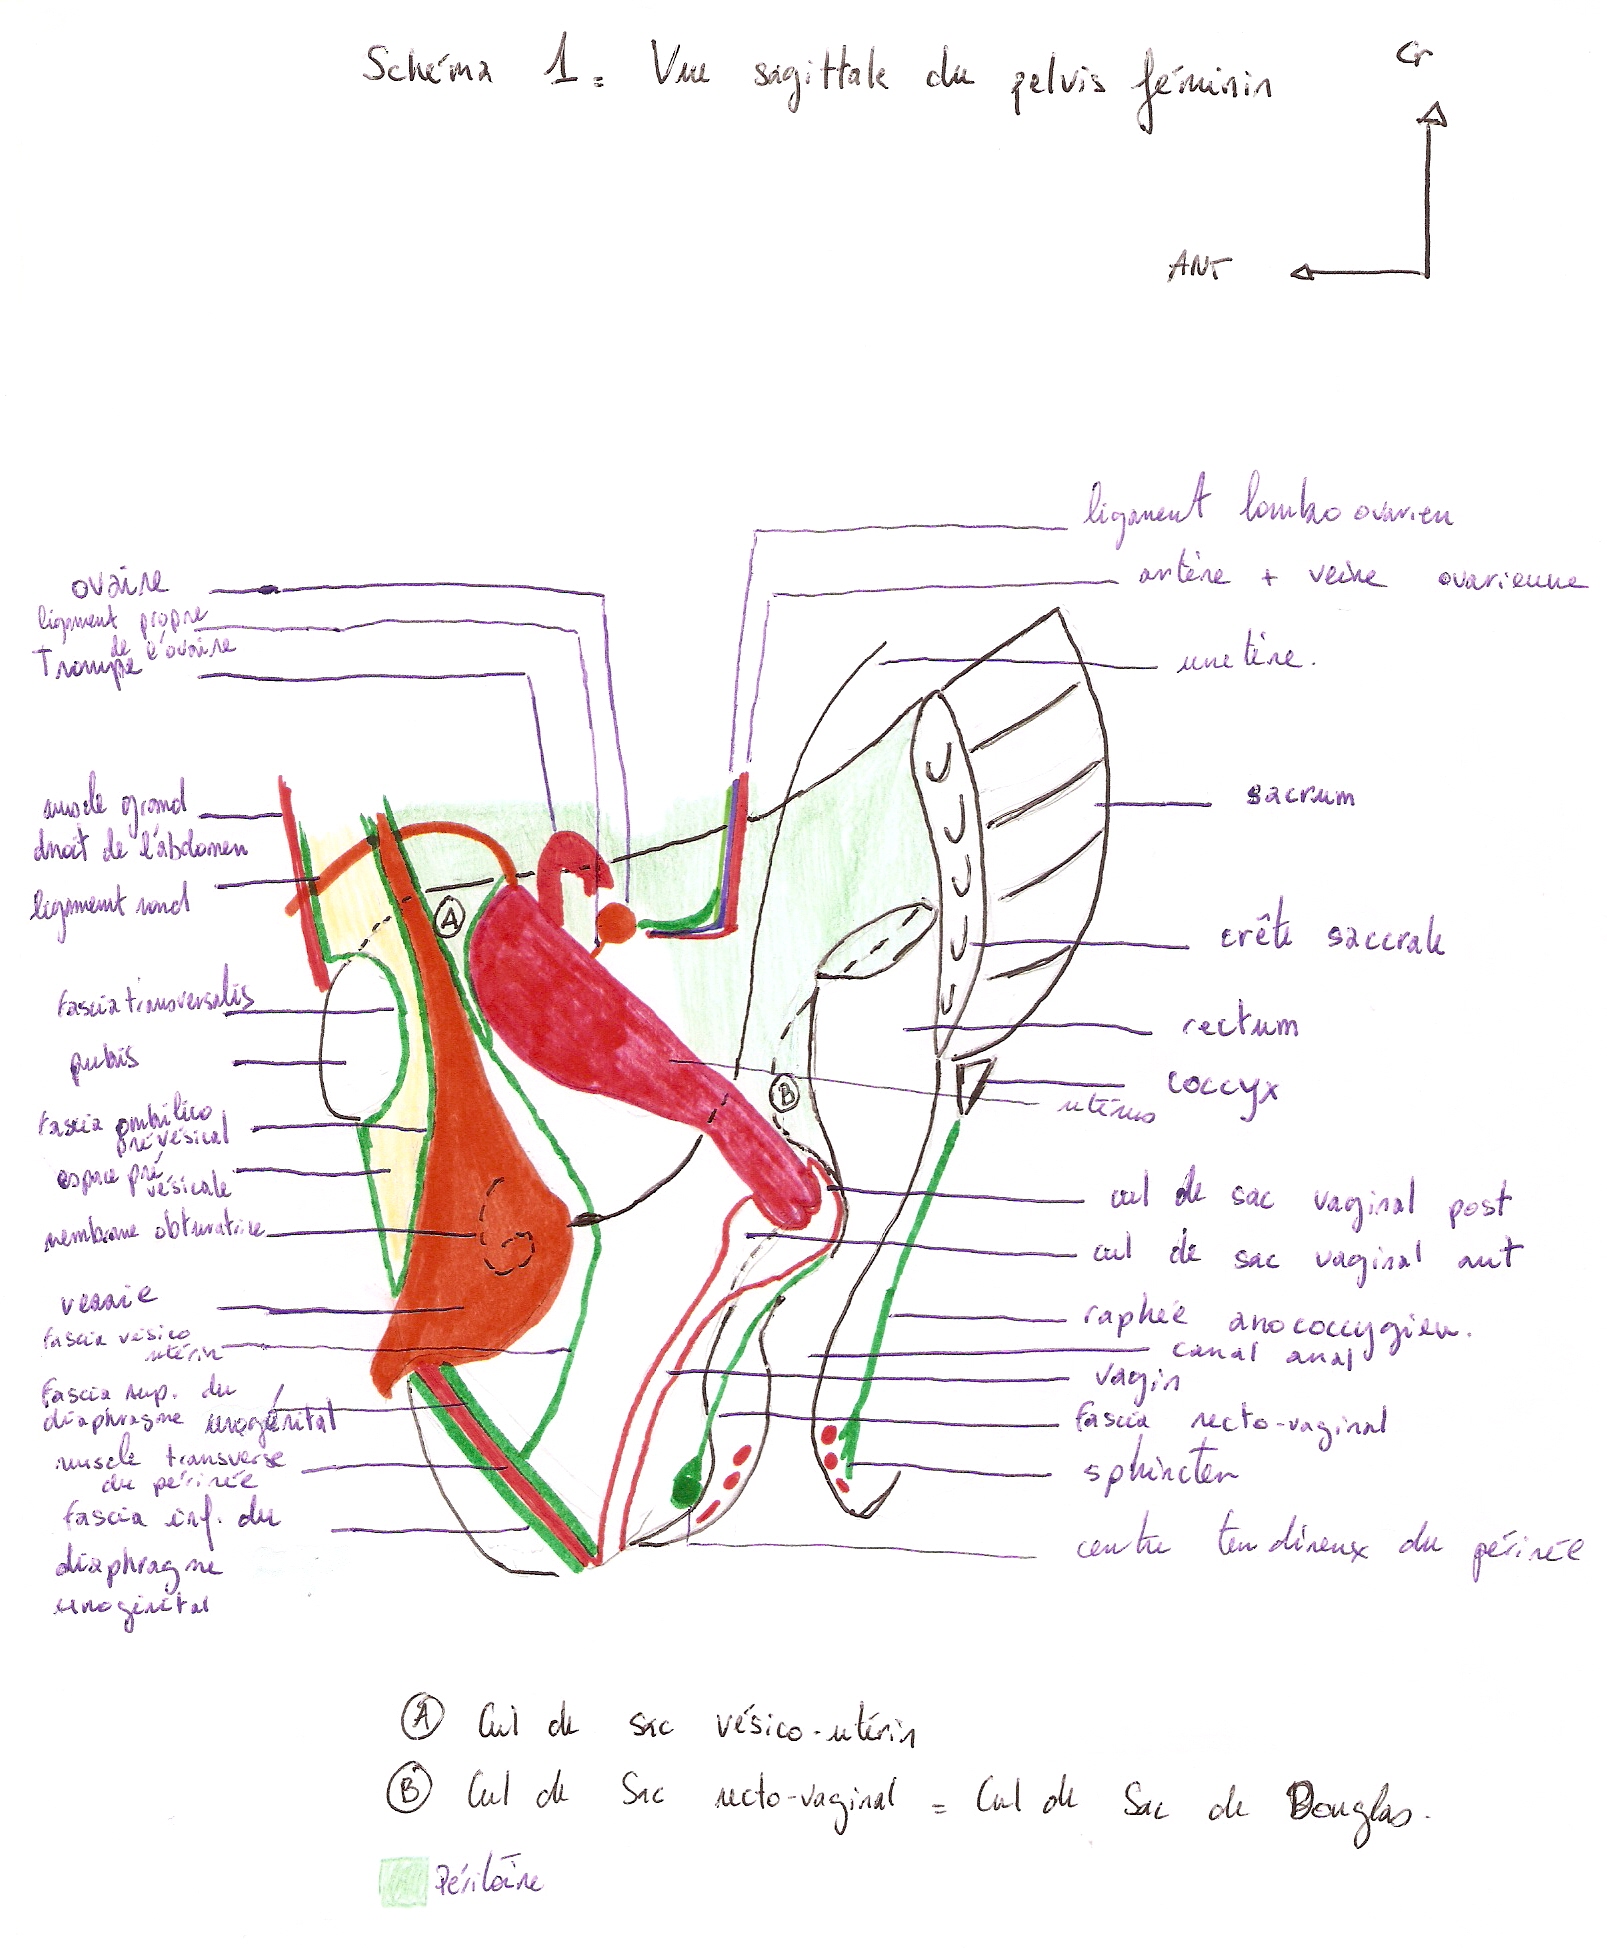 Schéma 1 = Vue sagittale du pelvis féminin
Cr
ANT
ovaire
ligament propre
de l'ovaire
Trompe
muscle grand
droit de l'abdomen
ligament rond
fascia transversalis
pubis
fascia ombilico
prévésical
espace pré
vésicale
membrane obturatrice
vessie
fascia vésico
utérin
fascia sup. du
diaphragme urogénital
muscle transverse
du périnée
fascia inf. du
diaphragme
urogénital
ligament lombo ovarien
artère + veine ovarienne
uretère.
sacrum
crête saccrale
rectum
coccyx
utérus
cul de sac vaginal post
cul de sac vaginal ant
raphée anococcygien.
canal anal
vagin
fascia recto-vaginal
sphincter
centre tendineux du périnée
A
B
A Cul de sac vésico-utérin
B Cul de Sac recto-vaginal = Cul de Sac de Douglas.
Péritoine